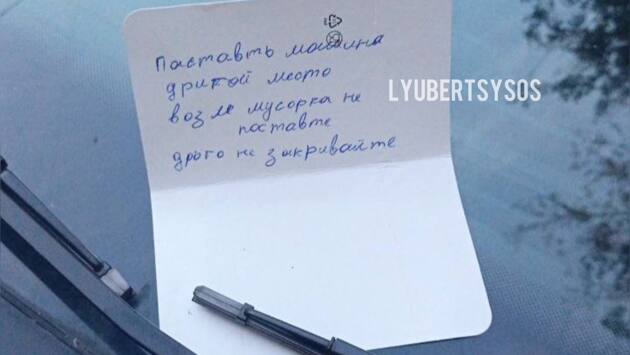 Паставть машина
дригой место
возле мусорка не
поставте
дрого не закривайте
LYUBERTSYSOS